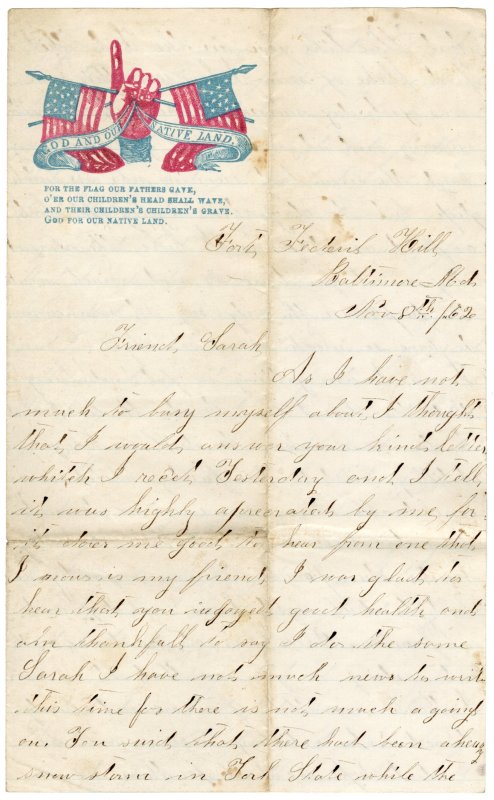 GOD AND OUR NATIVE LAND.
FOR THE FLAG OUR FATHERS GAVE,
O'ER OUR CHILDREN'S HEAD SHALL WAVE,
AND THEIR CHILDREN'S CHILDREN'S GRAVE.
GOD FOR OUR NATIVE LAND.
Fort Federil Hill
Baltimore Md
Nov 8th /62
Friend Sarah
As I have not
much to busy myself about I thought
that I would answer your kind letter
whitch I recet Yesterday and I tell
it was highly apreciated by me for
it does me good to hear from one that
I nows is my friend I was glad to
hear that you injoyed good health and
am thankfull to say I do the same
Sarah I have not much news to writ
this time for there is not much a going
on. You said that there had been a heavy
snow storm in York State while the